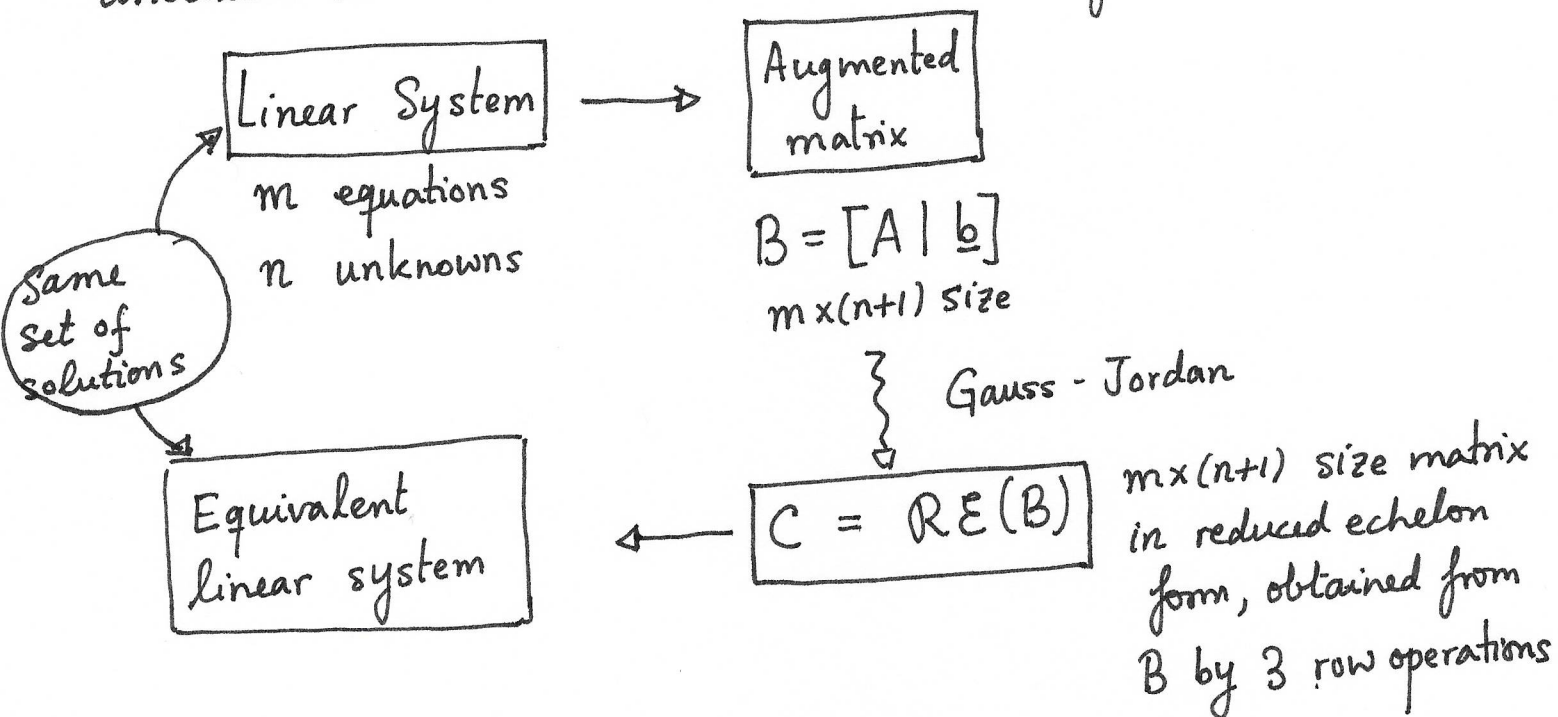 Linear System
m equations
n unknowns
Augmented
matrix
B = [A | b]
m×(n+1) size
Same
set of
solutions
Gauss - Jordan
Equivalent
linear system
C = RE(B)
m×(n+1) size matrix
in reduced echelon
form, obtained from
B by 3 row operations